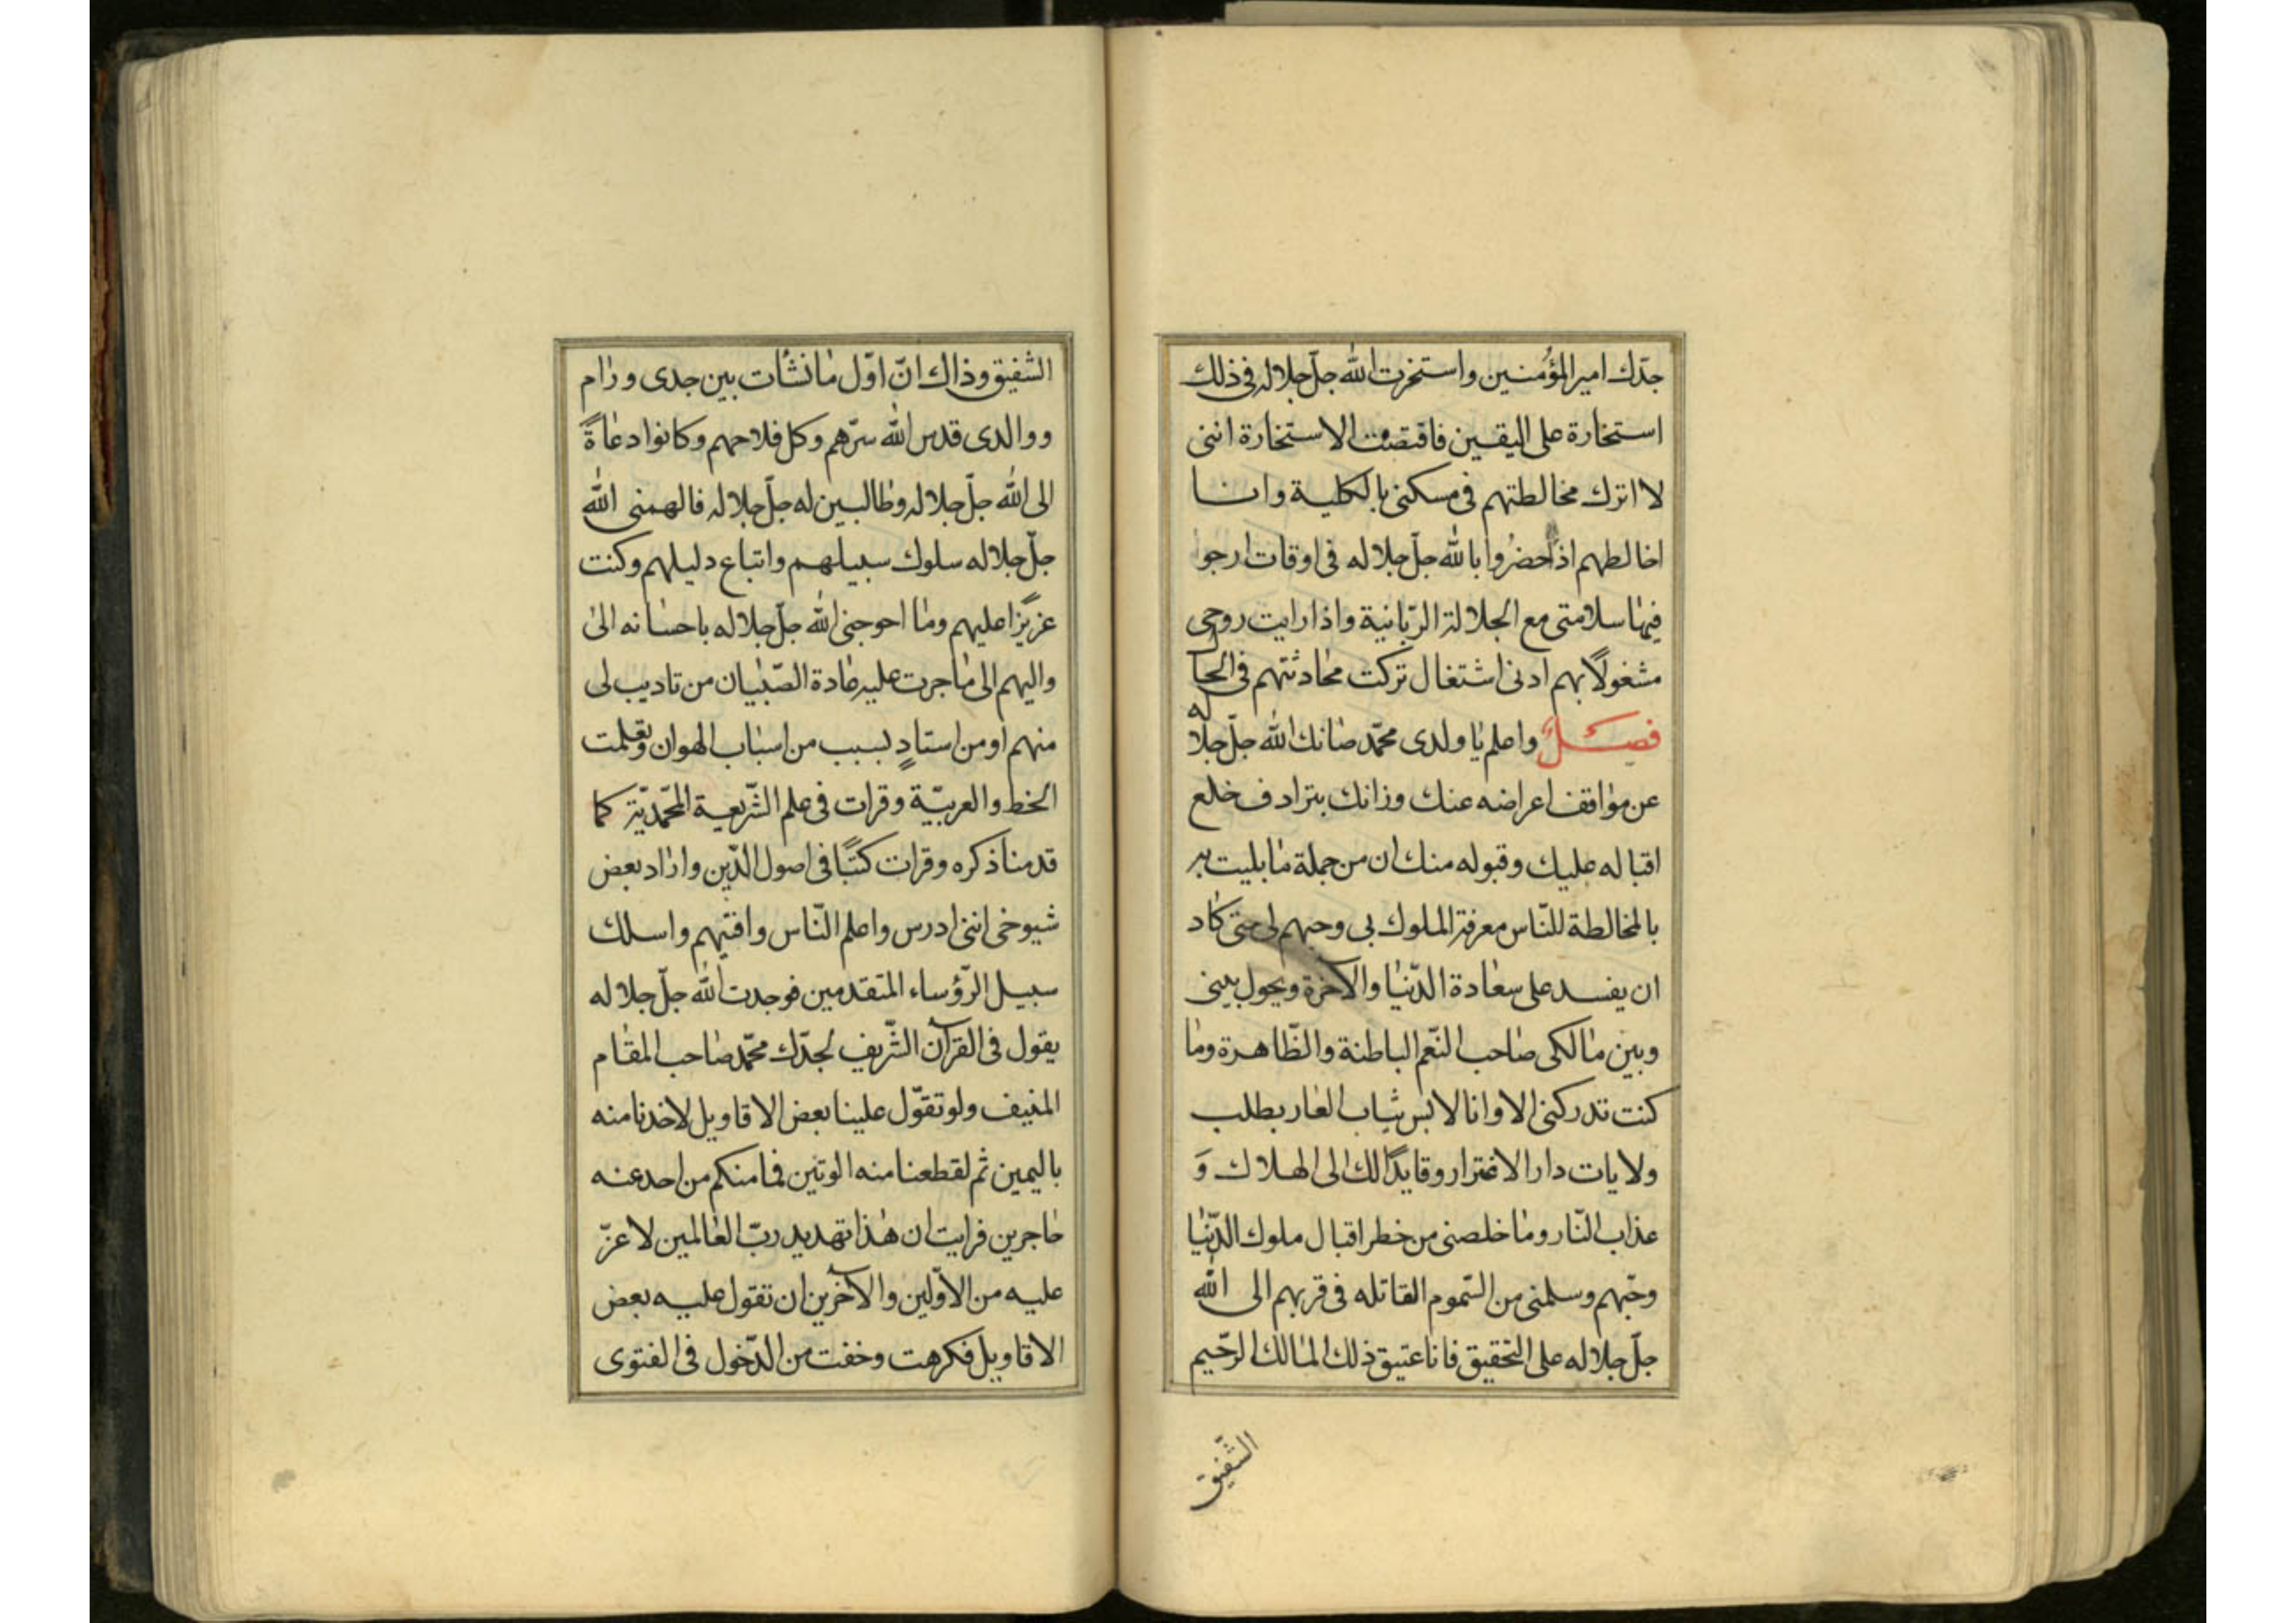 جدّك امير المؤمنين واستخرت الله جلّ جلاله فى ذلك
استخارة على اليقين فاقتضت الاستخارة اننى
لا اترك مخالطتهم فى مسكنى بالكلية وانا
اخالطهم اذا حضروا بالله جلّ جلاله فى اوقات ارجوا
فيها سلامتى مع الجلالة الرّبانية واذا رايت روحى
مشغولًا بهم ادنى اشتغال تركت محادثتهم فى الحال
فصل واعلم يا ولدى محمّد صانك الله جلّ جلاله
عن مواقف اعراضه عنك وزانك بترادف خلع
اقباله عليك وقبوله منك ان من جملة ما بليت به
بالمخالطة للنّاس معرفة الملوك بى وحبهم لى حتى كاد
ان يفسد على سعادة الدّنيا والآخرة ويحول بينى
وبين مالكى صاحب النّعم الباطنة والظّاهرة وما
كنت تدركنى الا وانا لابس ثياب العار بطلب
ولايات دار الاغترار وقايدًا لك الى الهلاك وَ
عذاب النّار وما خلصنى من خطر اقبال ملوك الدّنيا
وحبّهم وسلمنى من السّموم القاتله فى قربهم الى الله
جلّ جلاله على التحقيق فانا عتيق ذلك المالك الرّحيم
الشّفيق
الشّفيق وذاك انّ اوّل ما نشات بين جدى ورام
ووالدى قدس الله سرّهم وكل فلاحهم وكانوا دعاةً
الى الله جلّ جلاله وطالبين له جلّ جلاله فالهمنى الله
جلّ جلاله سلوك سبيلهم واتباع دليلهم وكنت
عزيزًا عليهم وما احوجنى الله جلّ جلاله باحسانه الىّ
واليهم الى ما جرت عليه عادة الصّبيان من تاديب لى
منهم او من استادٍ بسبب من اسباب الهوان وتعلمت
الخط والعربيّة وقرات فى علم الشّريعة المحّمديّة كما
قدمنا ذكره وقرات كتبًا فى اصول الدّين واراد بعض
شيوخى اننى ادرس واعلم النّاس وافتيهم واسلك
سبيل الرّؤساء المتقدمين فوجدت الله جلّ جلاله
يقول فى القرآن الشّريف لجدّك محمّد صاحب المقام
المنيف ولو تقوّل علينا بعض الاقاويل لاخذنا منه
باليمين ثم لقطعنا منه الوتين فما منكم من احد عنه
حاجزين فرايت ان هذا تهديد ربّ العالمين لا عزّ
عليه من الاوّلين والآخرين ان تقول عليه بعض
الاقاويل فكرهت وخفت من الدّخول فى الفتوى